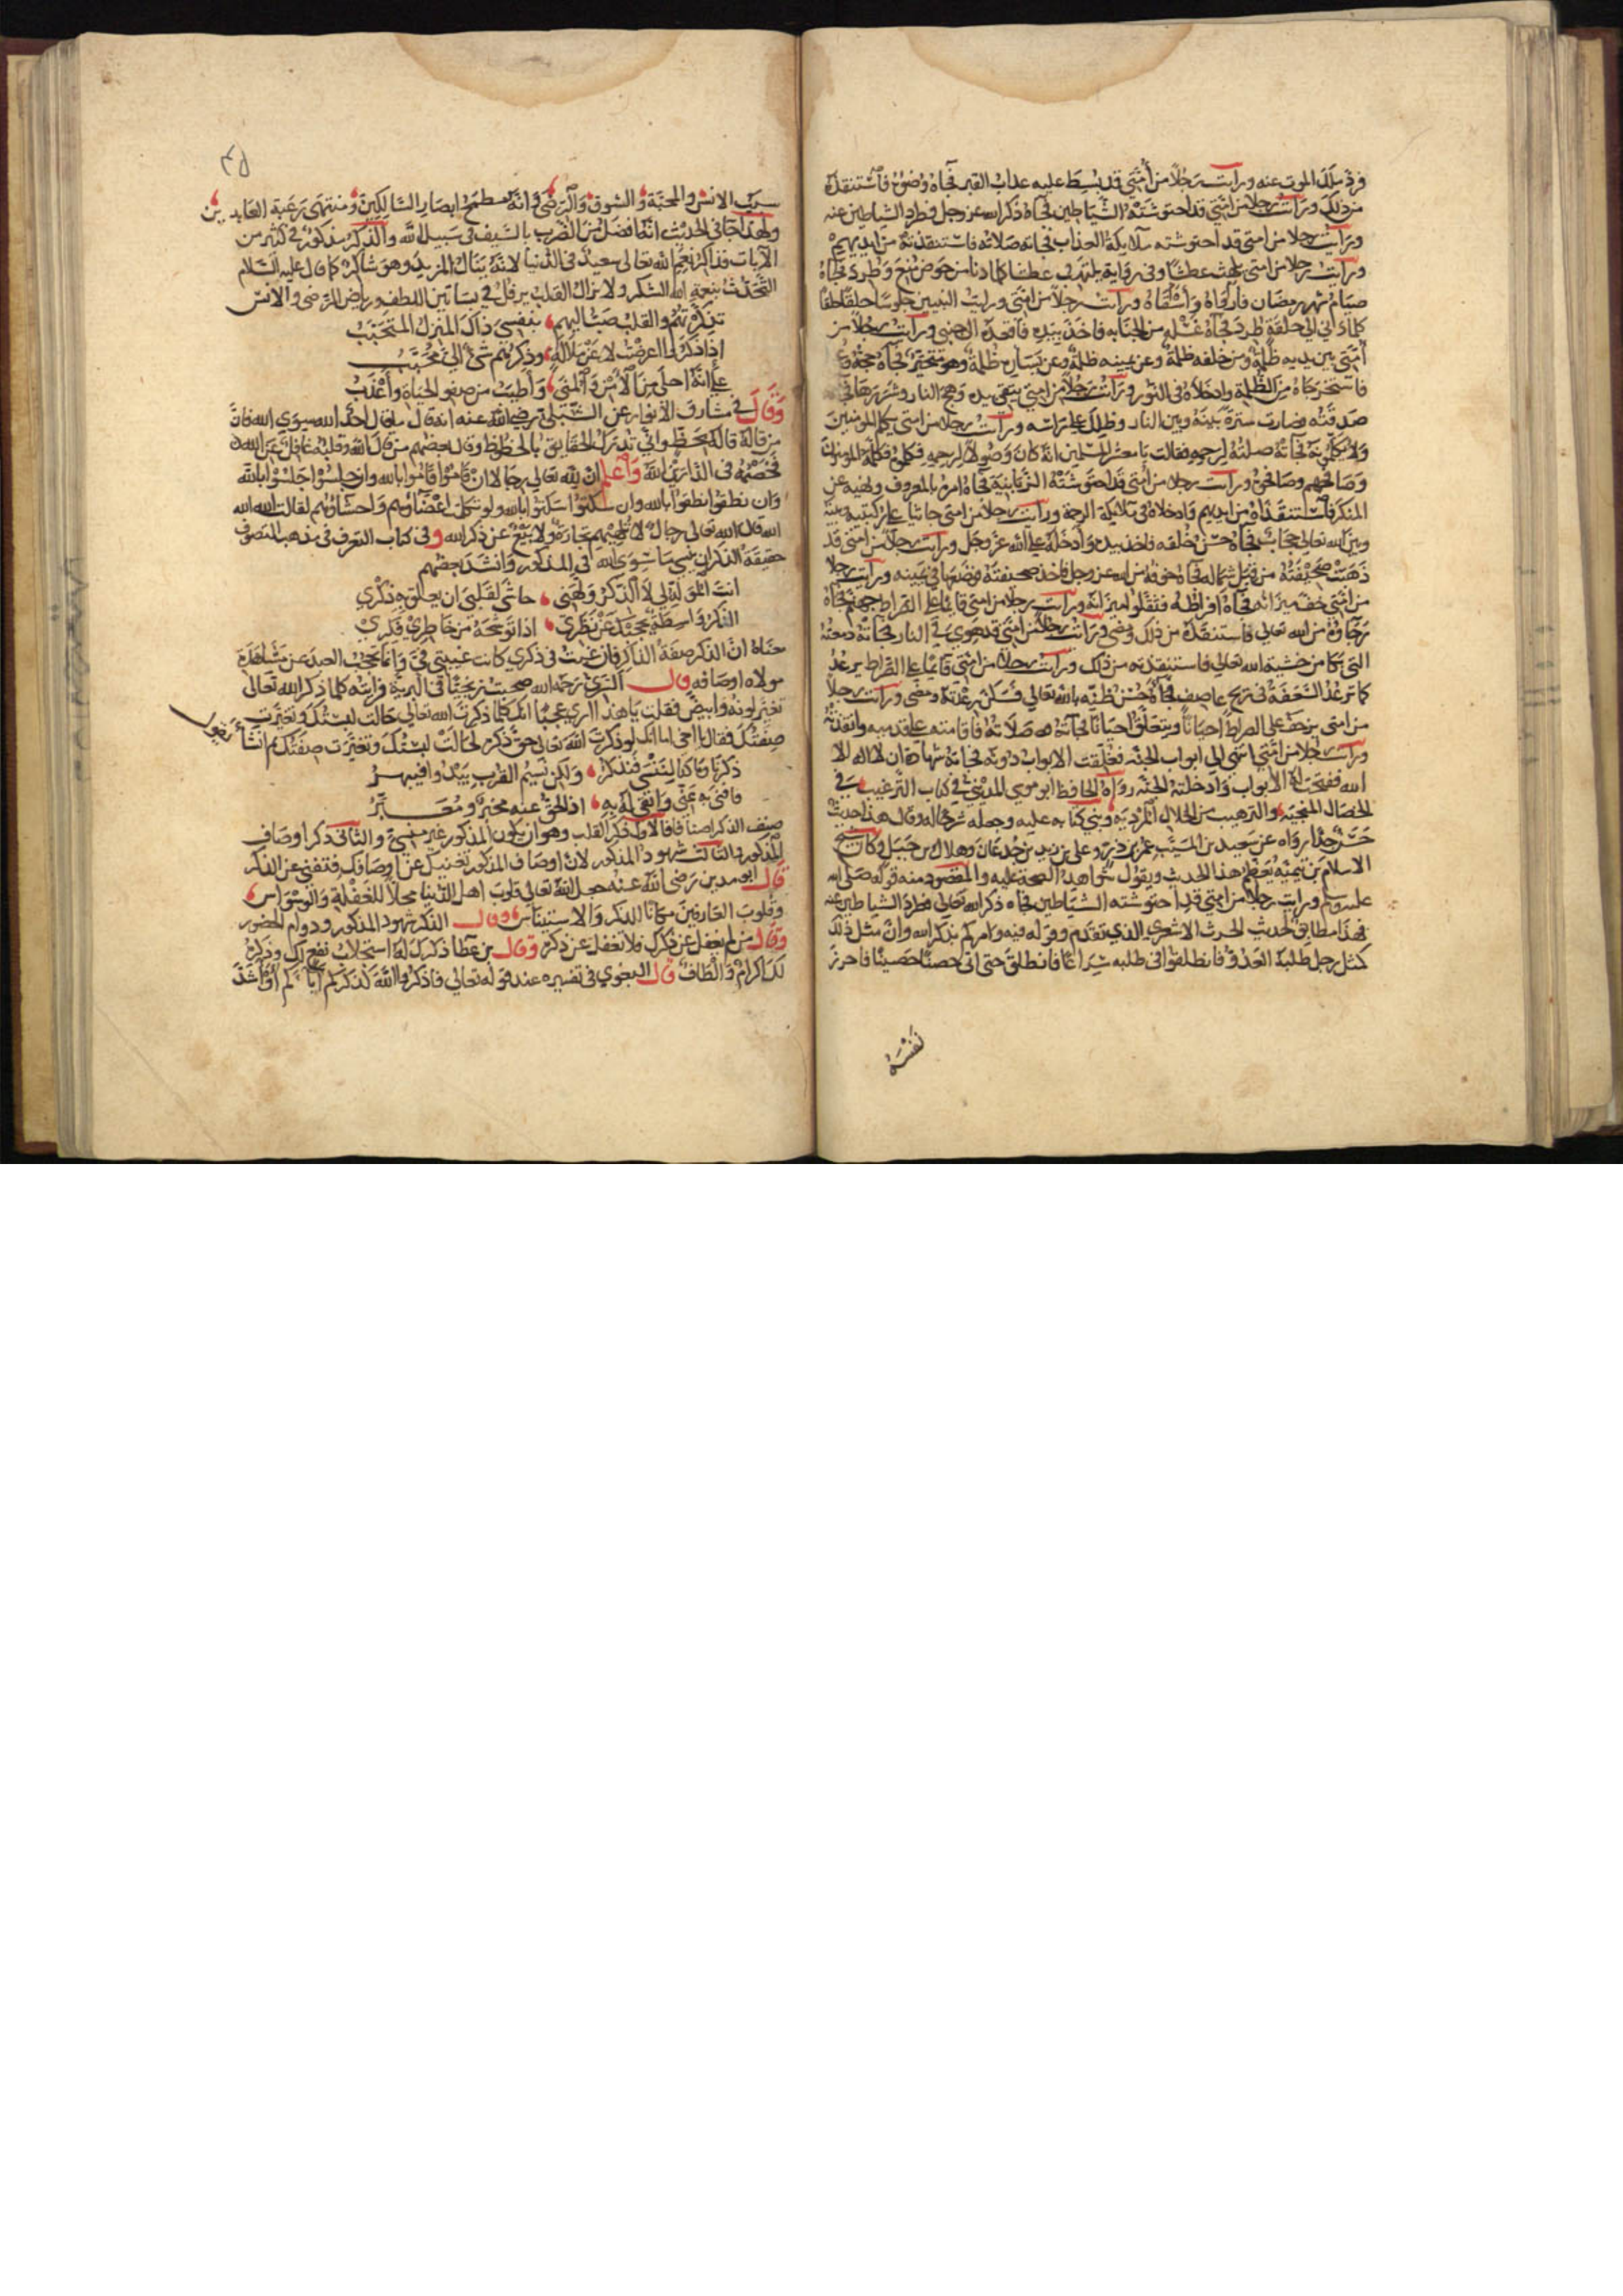 فرد ملك الموت عنه ورايت رجلا من أمتي قد بسط عليه عذاب القبر فجاه وضوه فاستنقذه
من ذلك ورايت رجلا من امتي قد احتوشته الشياطين فجاه ذكر الله عز وجل فطرد الشياطين عنه
ورايت رجلا من امتي قد احتوشته ملايكة العذاب فجاته صلاته فاستنقذته من ايديهم
ورايت رجلا من امتي يلهث عطشا وفي رواية يلتهب عطشا كلما دنا من حوض منع وطرد فجاه
صيام شهر رمضان فارواه وأسقاه ورايت رجلا من امتي ورايت النبيين جلوسا حلقا حلقا
كلما دنى الى حلقة طرد فجاه غسله من الجنابه فاخذ بيده فاقعده الى جنبي ورايت رجلا من
أمتي بين يديه ظلمة ومن خلفه ظلمة وعن يمينه ظلمة وعن يساره ظلمة وهو متحير فجاه حجه و
فاستخرجاه من الظلمة وادخلاه في النور ورايت رجلا من امتي يتقي بيده وهج النار وشررها
صدقته فصارت سترة بينه وبين النار وظلل على راسه ورايت رجلا من امتي يكلم المومنين
ولا يكلمونه فجاته صلته لرحمه فقالت يا معشر المسلمين انه كان وصولا لرحمه فكلموه فكلمه المومنون
وصافحهم وصافحوه ورايت رجلا من أمتي قد احتوشته الزبانية فجاه امره بالمعروف ونهيه عن
المنكر فاستنقذاه من ايديهم وادخلاه في ملايكة الرحمة ورايت رجلا من امتي جاثيا على ركبتيه بينه
وبين الله تعالى حجاب فجاه حسن خلقه فاخذ بيده وأدخله على الله عز وجل ورايت رجلا من امتي قد
ذهبت صحيفته من قبل شماله فجاه خوفه من الله عز وجل فاخذ صحيفته فوضعها في يمينه ورايت رجلا
من امتي خف ميزانه فجاه افراطه فثقلوا ميزانه ورايت رجلا من امتي قايما على الصراط جهنم فجاه
رجاوه من الله تعالى فاستنقذه من ذلك ومضى ورايت رجلا من امتي قد هوى في النار فجاته دمعته
التي بكا من خشية الله تعالى فاستنقذته من ذلك ورايت رجلا من امتي قايما على الصراط يرعد
كما ترعد السعفة في ريح عاصف فجاه حسن ظنه بالله تعالى فسكن رعدته ومضى ورايت رجلا
من امتي يزحف على الصراط احيانا ويتعلق احيانا فجاته صلاته فاقامته على قدميه وانقذته
ورايت رجلا من امتي انتهى الى ابواب الجنه فغلقت الابواب دونه فجاته شهادة ان لا اله الا
الله ففتحت له الأبواب وادخلته الجنه رواه الحافظ ابو موسى المديني في كتاب الترغيب في
الخصال المنجيه والترهيب من الخلال المرديه وبنى كتابه عليه وجعله شرحا له وقال هذا حديث
حسن جدا رواه عن سعيد بن المسيب عمر بن ذر وعلي بن زيد بن جدعان وهلال بن جبل وكان شيخ
الاسلام بن تيميه يعظم هذا الحديث ويقول شواهد الصحة عليه والمقصود منه قوله صلى الله
عليه وسلم ورايت رجلا من امتي قد احتوشته الشياطين فجاه ذكر الله تعالى فطرد الشياطين عنه
فهذا مطابق لحديث الحرث الاشعري الذي تقدم وقوله فيه وامركم بذكر الله وان مثل ذلك
كمثل رجل طلبه العدو فانطلقوا في طلبه سراعا فانطلق حتى اتى حصنا حصينا فاحرز
نفسه
سبب الانس والمحبة والشوق والرضى وانه مطمح ابصار السالكين ومنتهى رغبة العابدين
ولهذا جا في الحديث انه افضل من الضرب بالسيف في سبيل الله والذكر مذكور في كثير من
الآيات فذاكر نعم الله تعالى سعيد في الدنيا لانه ينال المزيد وهو شاكر كما قال عليه السلام
التحدث بنعمة الله الشكر ولا يزال القلب يرفل في بساتين اللطف ورياض الرضى والانس
تذكرتهم والقلب صب اليهم بنفسي ذاك المنزل المتحبب
إذا ذكروا اعرضت لا عن ملالة وذكرهم شئ الي محبب
على انه احلى من الأمن والمنى وأطيب من صفو الحياة وأعذب
وقال في مشارق الأنوار عن الشبلي رضي الله عنه انه قال ما قال احد الله سوى الله فان
من قاله قاله بحظ واني تدرك الحقايق بالحظوظ وقال بعضهم من قال الله وقلبه غافل عن الله
فخصمه في الدارين الله واعلم ان لله تعالى رجالا ان قاموا قاموا بالله وان جلسوا جلسوا بالله
وان نطقوا نطقوا بالله وان سكتوا سكتوا بالله ولو تكلمت اعضاؤهم واحشاؤهم لقالت الله الله
الله قال الله تعالى رجال لا تلهيهم تجارة ولا بيع عن ذكر الله وفي كتاب التعرف في مذهب التصوف
حقيقة الذكر ان ينسى ما سوى الله في المذكور وانشد بعضهم
انت المؤملي لا الذكر ولهني حاشى لقلبي ان يعلق به ذكري
الذكر واسطة تحجبك عن نظري اذا توشحه من خاطري فكري
معناه ان الذكر صفة الذاكر فان غبت في ذكري كانت غيبتي في وانما يحجب العبد عن مشاهدة
مولاه اوصافه قال السري رحمه الله صحبت زنجيا في البرية فرايته كلما ذكر الله تعالى
تغير لونه وابيض فقلت يا هذا ارى عجبا انك كلما ذكرت الله تعالى حالت لبستك وتغيرت
صفتك فقال يا اخي اما انك لو ذكرت الله تعالى حق ذكره لحالت لبستك وتغيرت صفتك ثم انشأ يقول
ذكرنا وما كنا لننسى فنذكر ولكن نسيم القرب يبدوا فيبهر
فافنى به عني وابقى له به اذ الحق عنه مخبر ومعبر
صنف الذكر اصنافا فالاول ذكر القلب وهو ان يكون المذكور غير منسي والثاني ذكر اوصاف
المذكور والثالث شهود المذكور لان اوصاف المذكور تفنيك عن اوصافك فتفنى عن الذكر
قال ابو مدين رضي الله عنه جعل الله تعالى قلوب اهل الدنيا محلا للغفلة والوسواس
وقلوب العارفين مكانا للذكر والاستيناس وقال الذكر شهود المذكور ودوام الحضور
وقال من لم يغفل عن ذكرك فلا تغفل عن ذكره وقال بن عطا ذكرك له استجلاب نفع لك وذكره
لك اكرام والطاف قال البغوي في تفسيره عند قوله تعالى فاذكروا الله كذكركم آباكم أو أشد